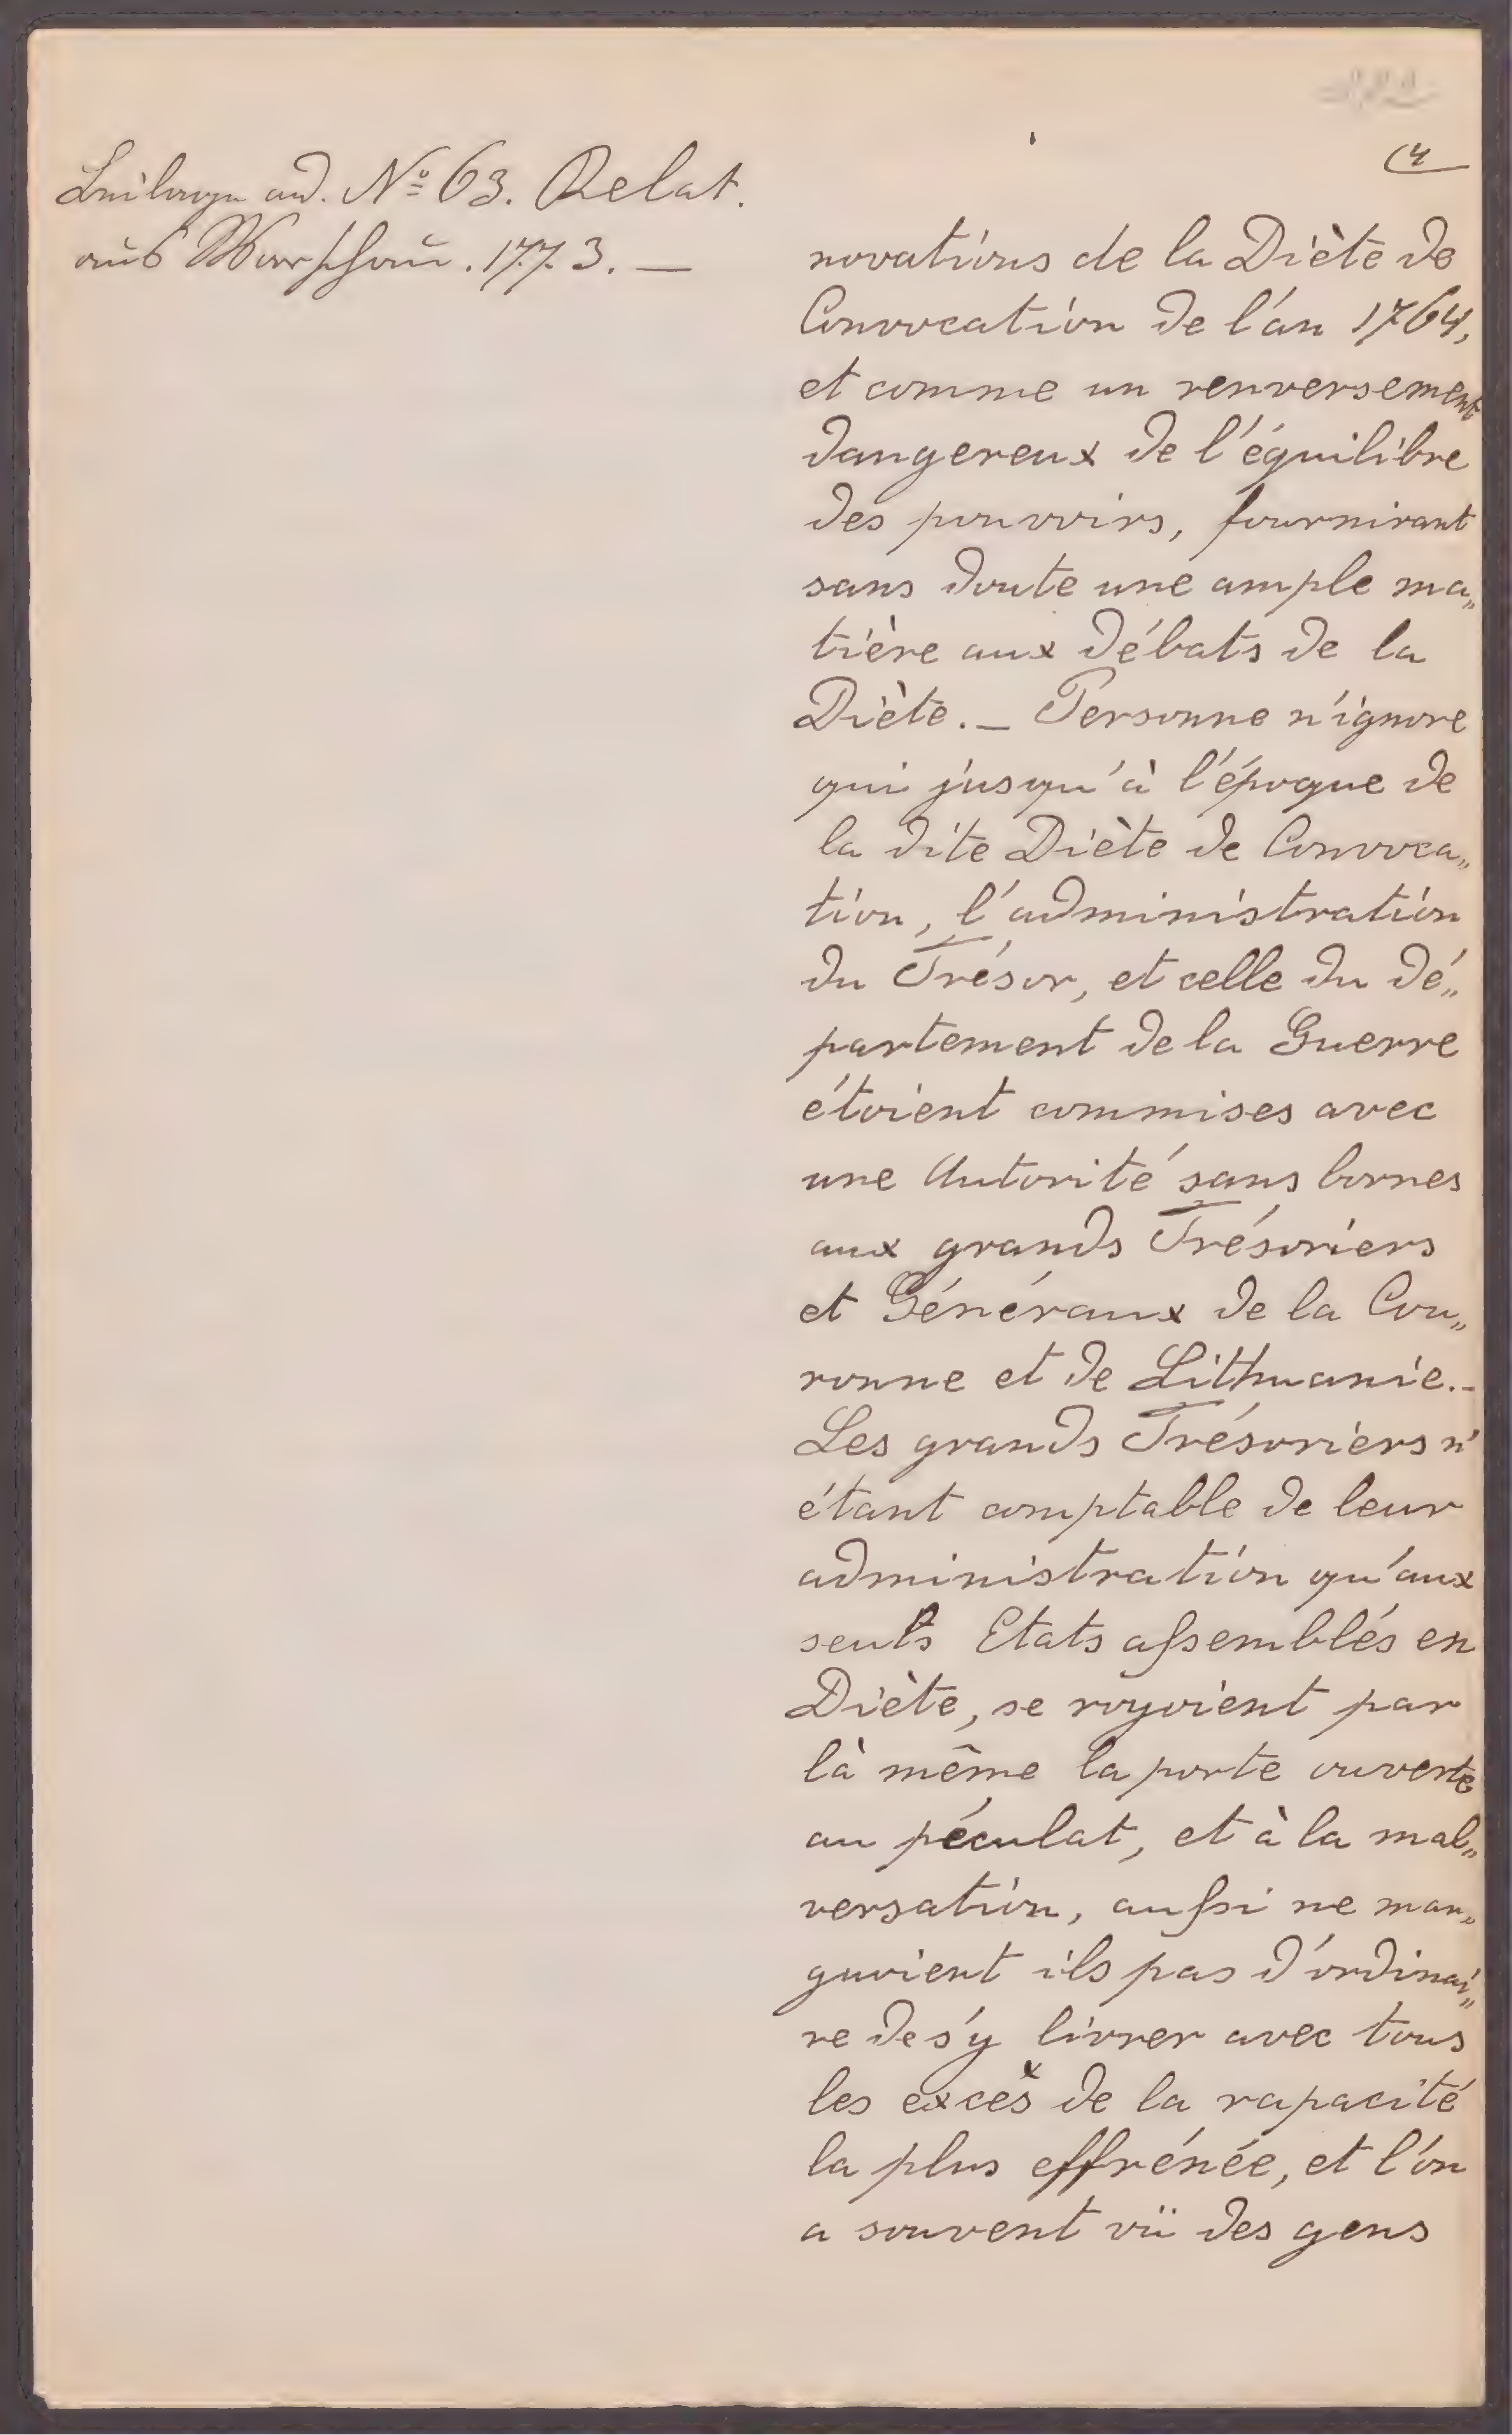 Beilage ad. Nº 63. Relat.
aus Warschau. 1773. —
(4
novations de la Diète de
Convocation de l'an 1764,
et comme un renversement
dangereux de l'équilibre
des pouvoirs, fournirant
sans doute une ample ma„
tière aux débats de la
Diète. — Personne n'ignore
qui jusqu'à l'époque de
la dite Diète de Convoca„
tion, l'administration
du Trésor, et celle du dé„
partement de la Guerre
étoient commises avec
une Autorité sans bornes
aux grands Trésoriers
et Généraux de la Cou„
ronne et de Lithuanie. –
Les grands Trésoriers n'
étant comptable de leur
administration qu'aux
seuls Etats assemblés en
Diète, se voyoient par
là même la porte ouverte
au péculat, et à la mal„
versation, aussi ne man„
quoient ils pas d'ordinai„
re de s'y livrer avec tous
les excès de la rapacité
la plus effrénée, et l'on
a souvent vü des gens